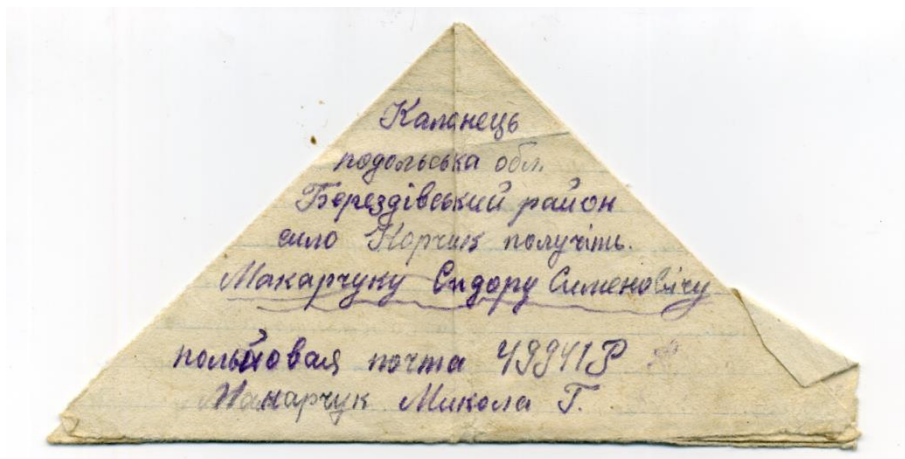 Каменець
подольська обл.
Берездівський район
сило Корчик получіть.
Макарчуку Сидору Сименовічу
польовая почта 49941Р
Макарчук Микола Г.